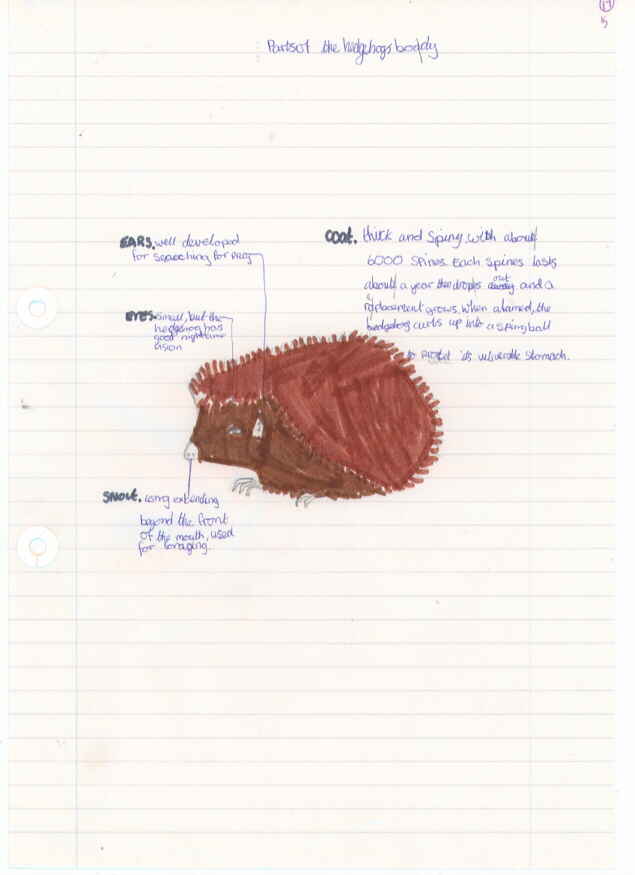 Parts of the hedgehogs boddy
EARS. well developed
for searching for prey
EYES. small, but the
hedgehog has
good nighttime
vision
COAT. thick and Spiny, with about
6000 Spines. Each Spines lasts
about a year the drops out and a
replacement grows. When alarmed, the
hedgehog curls up into a spiny ball
to protect its vulnerable stomach.
SNOUT. Long extending
beyond the front
of the mouth, used
for foraging.